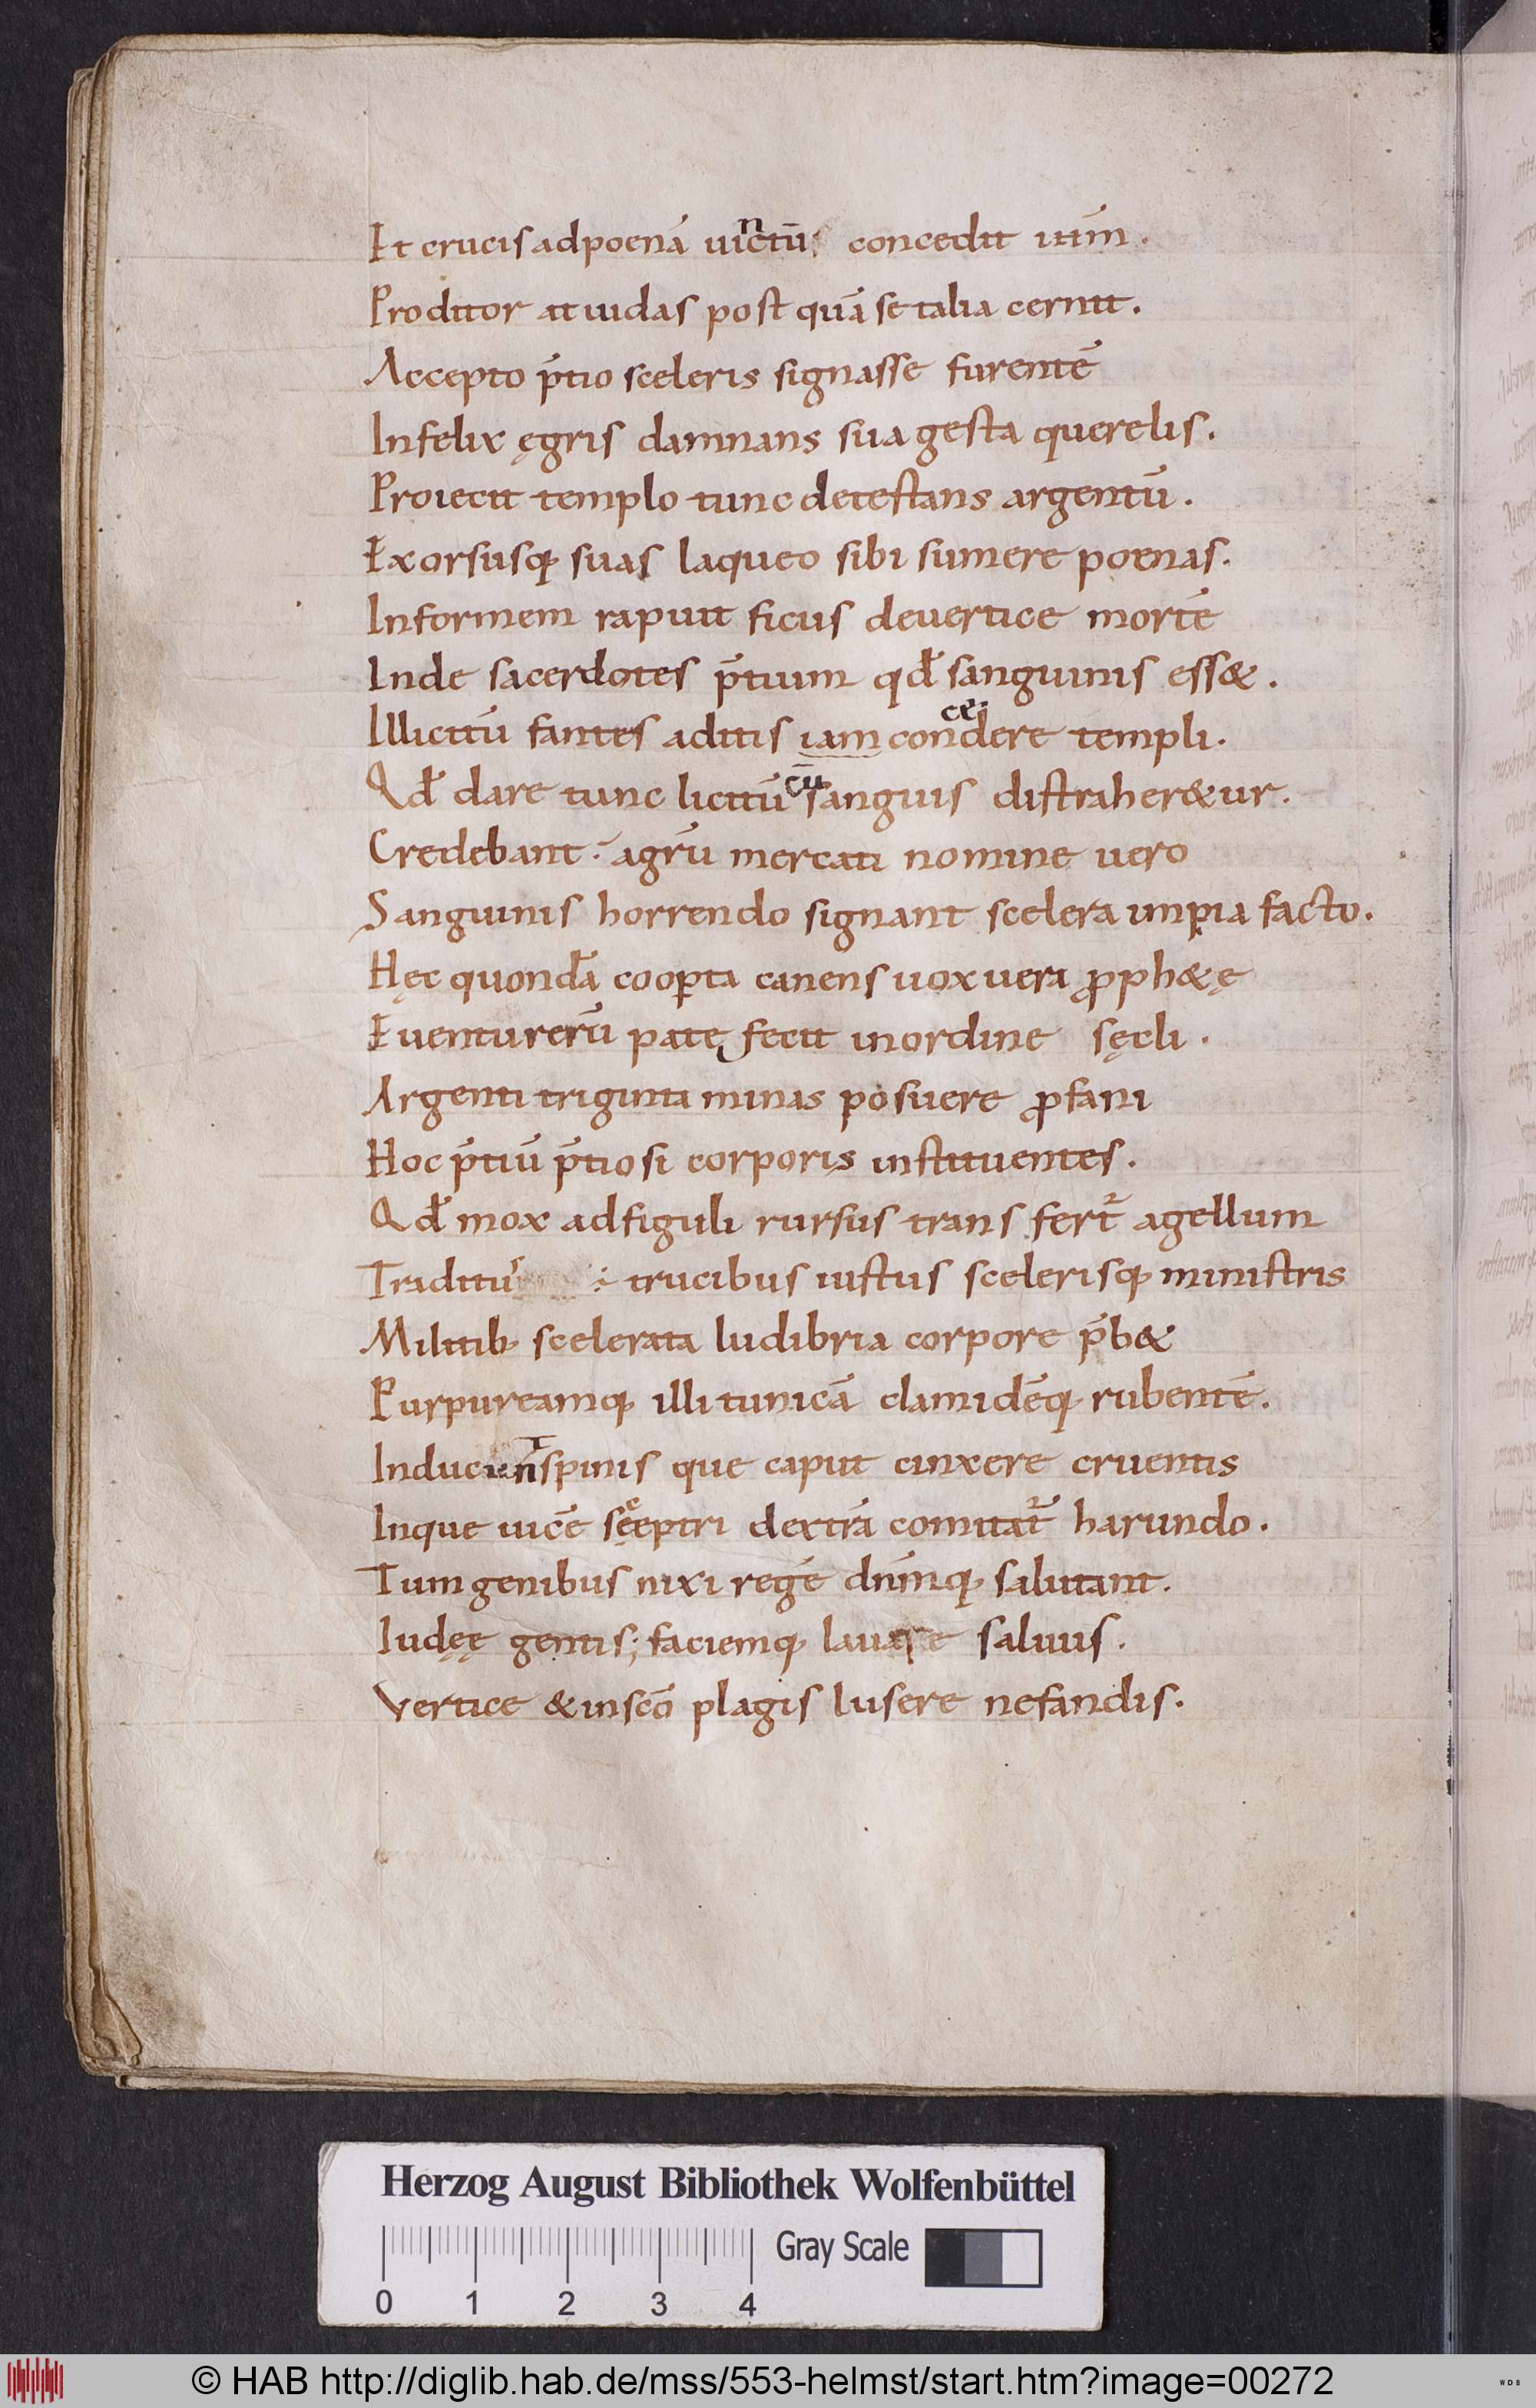 Et crucis ad poená uinctū concedit iúm.
Proditor at iudas post quā se talia cernit.
Accepto p̄tio sceleris signasse furentē
Infelix ęgris damnans sua gesta querelis.
Proiecit templo tunc detestans argentū.
Exorsusq; suas laqueo sibi sumere poenas.
Informem rapuit ficus de uertice morté
Inde sacerdotes p̄tium qđ sanguinis ess&.
ce.
Illicitū fantes aditis iam condere templi.
Qđ dare tunc licitū cū sanguis distraher&ur.
Credebant : agrū mercati nomine uero
Sanguinis horrendo signant scelera impia facto.
Hęc quondā cooꝑta canens uox uera ꝓph&ę
Euentu rerū pate fecit in ordine sęcli.
Argenti triginta minas posuere ꝓfani
Hoc p̄tiū p̄tiosi corporis instituentes.
Qđ mox ad figuli rursus trans fert̃ agellum
Traditur : trucibus iustus scelerisq; ministris
Militib; scelerata ludibria corpore p̄b&
Purpureamq; illi tunicā clamidēq; rubentē.
Inducunt spinis que caput cinxere cruentis
Inque uicē sęceptri dextrā comitat̃ harundo.
Tum genibus nixi regē dn̄mq; salutant.
Iudęę gentis; faciemq; lauare saliuis.
Vertice & in sc̄o plagis lusere nefandis.
Herzog August Bibliothek Wolfenbüttel
Gray Scale
0 1 2 3 4
© HAB http://diglib.hab.de/mss/553-helmst/start.htm?image=00272
WDB